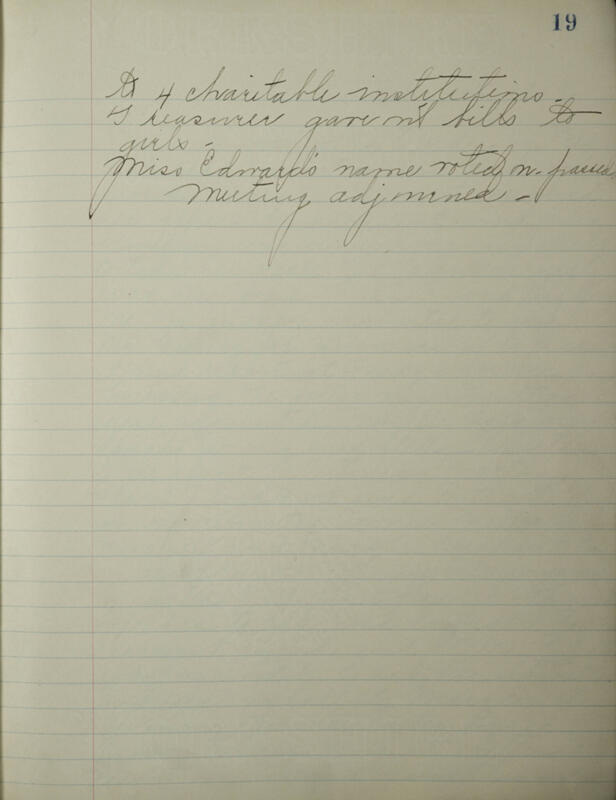 19
to 4 charitable institutions -
Treasurer gave out bills to
girls -
Miss Edward's name voted on - passed
Meeting adjourned -